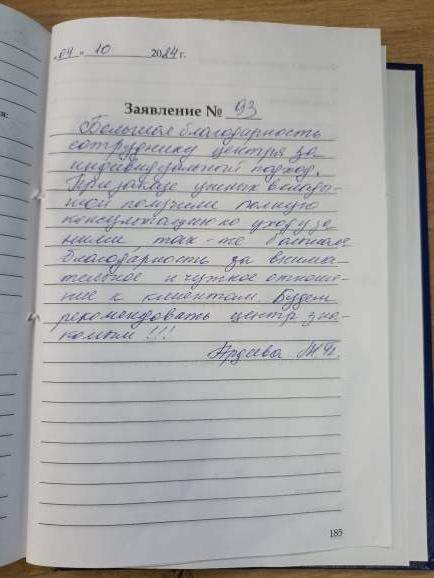 "04" 10 2024 г.
Заявление № 93
Большая благодарность
сотруднику центра за
индивидуальный подход.
При заказе ушных вклады-
шей получили полную
консультацию по уходу за
ними так-же большая
благодарность за внима-
тельное и чуткое отноше-
ние к клиентам. Будем
рекомендовать центр зна-
комым!!!
185